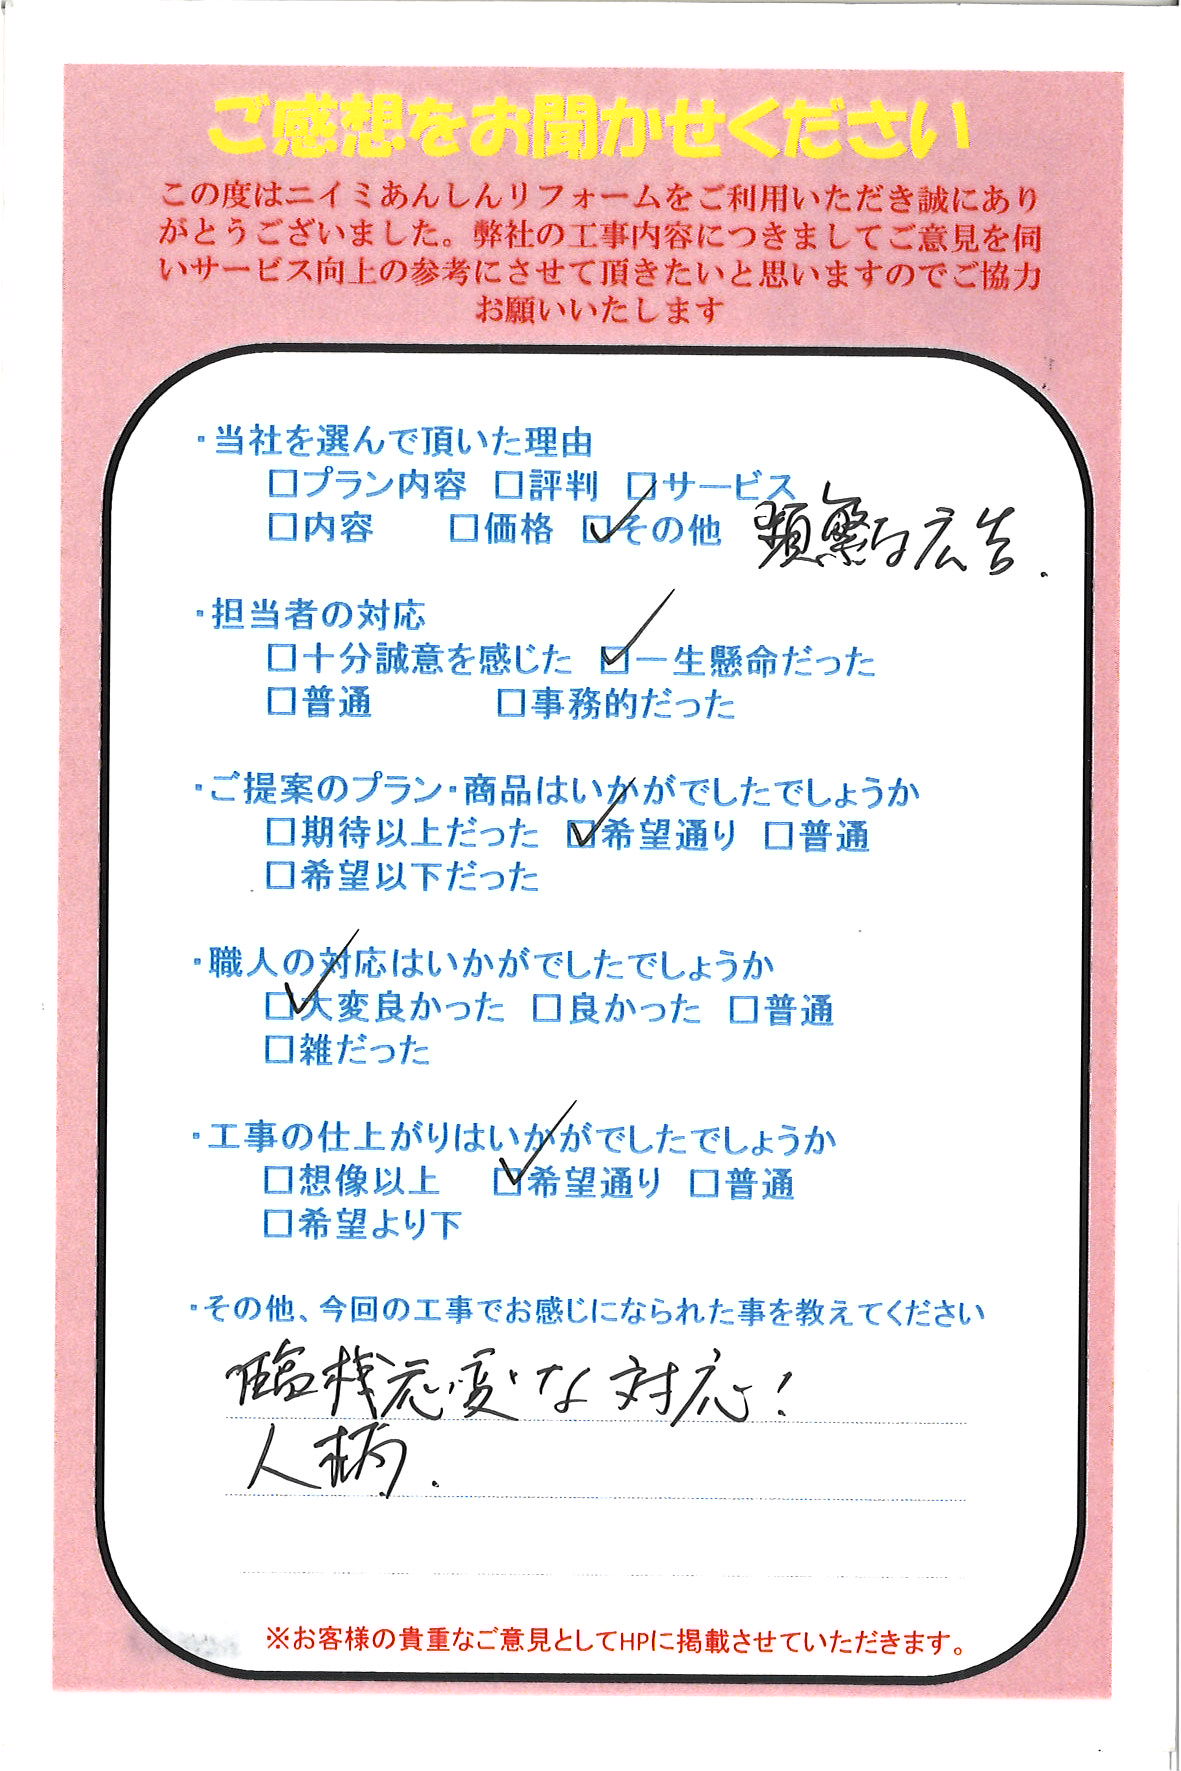 ご感想をお聞かせください
この度はニイミあんしんリフォームをご利用いただき誠にあり
がとうございました。弊社の工事内容につきましてご意見を伺
いサービス向上の参考にさせて頂きたいと思いますのでご協力
お願いいたします
・当社を選んで頂いた理由
□プラン内容 □評判 □サービス
□内容 □価格 ☑その他 頻繁な広告.
・担当者の対応
□十分誠意を感じた ☑一生懸命だった
□普通 □事務的だった
・ご提案のプラン・商品はいかがでしたでしょうか
□期待以上だった ☑希望通り □普通
□希望以下だった
・職人の対応はいかがでしたでしょうか
☑大変良かった □良かった □普通
□雑だった
・工事の仕上がりはいかがでしたでしょうか
□想像以上 ☑希望通り □普通
□希望より下
・その他、今回の工事でお感じになられた事を教えてください
臨機応変な対応!
人柄.
※お客様の貴重なご意見としてHPに掲載させていただきます。